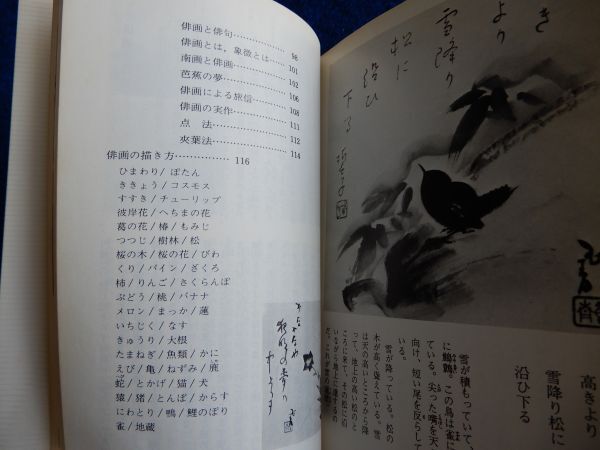 俳画と俳句 98
俳画とは，象徴とは 101
南画と俳画 102
芭蕉の夢 106
俳画による旅信 108
俳画の実作 111
点 法 112
夾葉法 114
俳画の描き方 116
ひまわり/ぼたん
ききょう/コスモス
すすき/チューリップ
彼岸花/へちまの花
葛の花/椿/もみじ
つつじ/樹林/松
桜の木/桜の花/びわ
くり/パイン/ざくろ
柿/りんご/さくらんぼ
ぶどう/桃/バナナ
メロン/まっか/蓮
いちじく/なす
きゅうり/大根
たまねぎ/魚類/かに
えび/亀/ねずみ/鹿
蛇/とかげ/猫/犬
猿/猪/とんぼ/からす
にわとり/鴨/鯉のぼり
雀/地蔵
き
より
雪降り
松に
沿ひ
下る
高きより
雪降り松に
沿ひ下る
雪が積もっていて、
に鶺鴒。この鳥は雀に
ている。尖った嘴を天
向け、短い尾を反らして
いる。
雪が降っている。松の
木が高く聳えている。雪
は天の高いところから降
って、地上の高い松のと
ころに来て、その松に沿
いながら地上に達するの